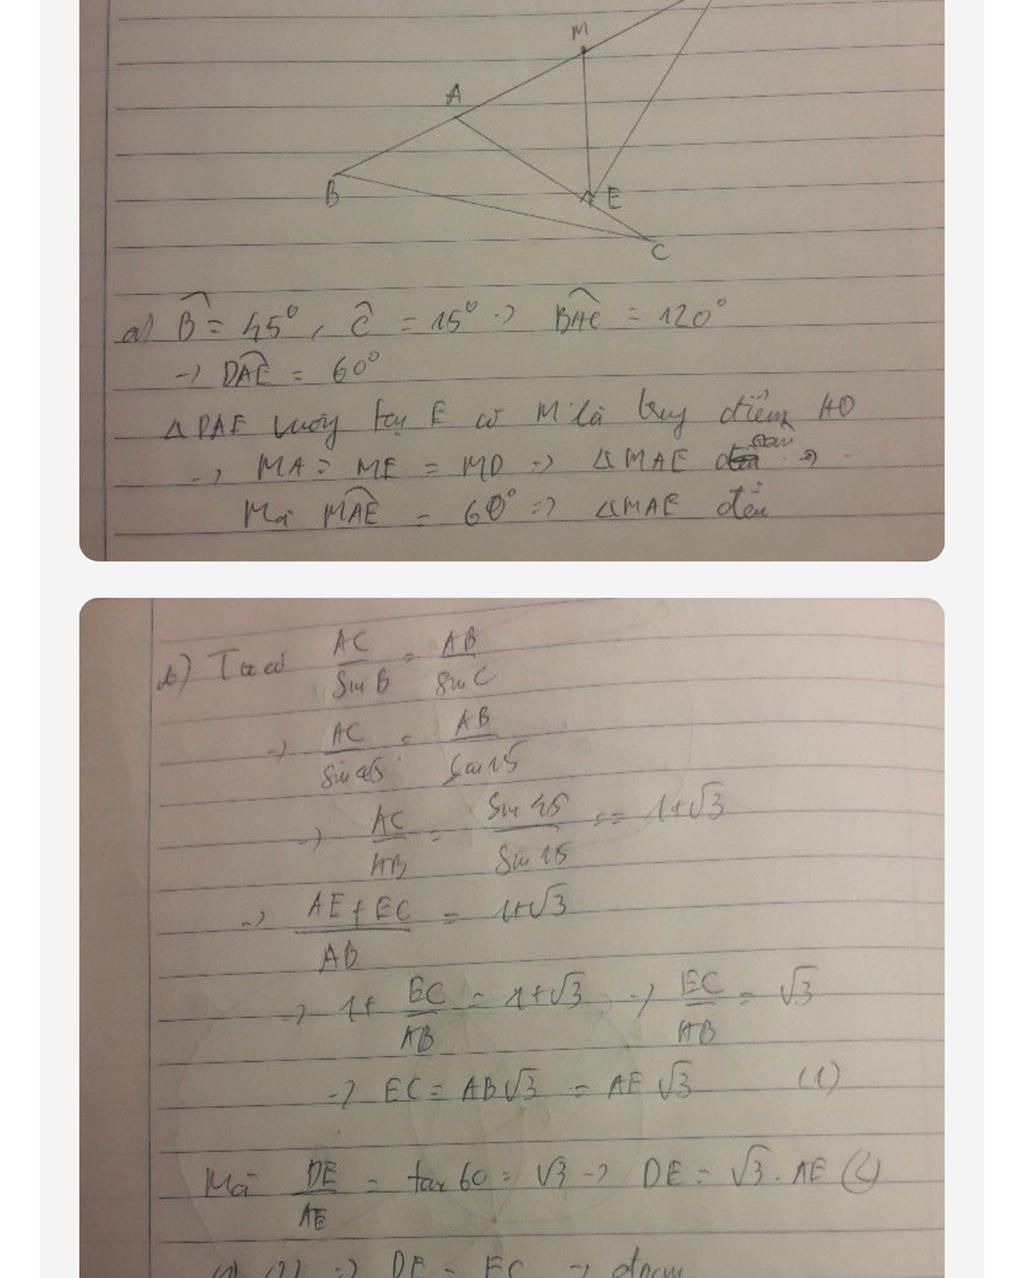 M
A
B
E
C
a) B̂ = 45°, Ĉ = 15° → BAC = 120°
→ DAE = 60°
△DAE vuông tại E có M là trung điểm AD
→ MA = ME = MD => △MAE cân =>
Mà MAE = 60° => △MAE đều
b) Ta có AC/sin B = AB/sin C
→ AC/sin 45 = AB/sin 15
→ AC/AB = sin 45/sin 15 == 1+√3
→ AE + EC/AB = 1+√3
→ 1+ EC/AB = 1+√3 → EC/AB = √3
→ EC = AB√3 = AE√3 (1)
Mà DE/AE = tan 60 = √3 → DE = √3 . AE (2)
(1) (2) => DE = EC → đpcm